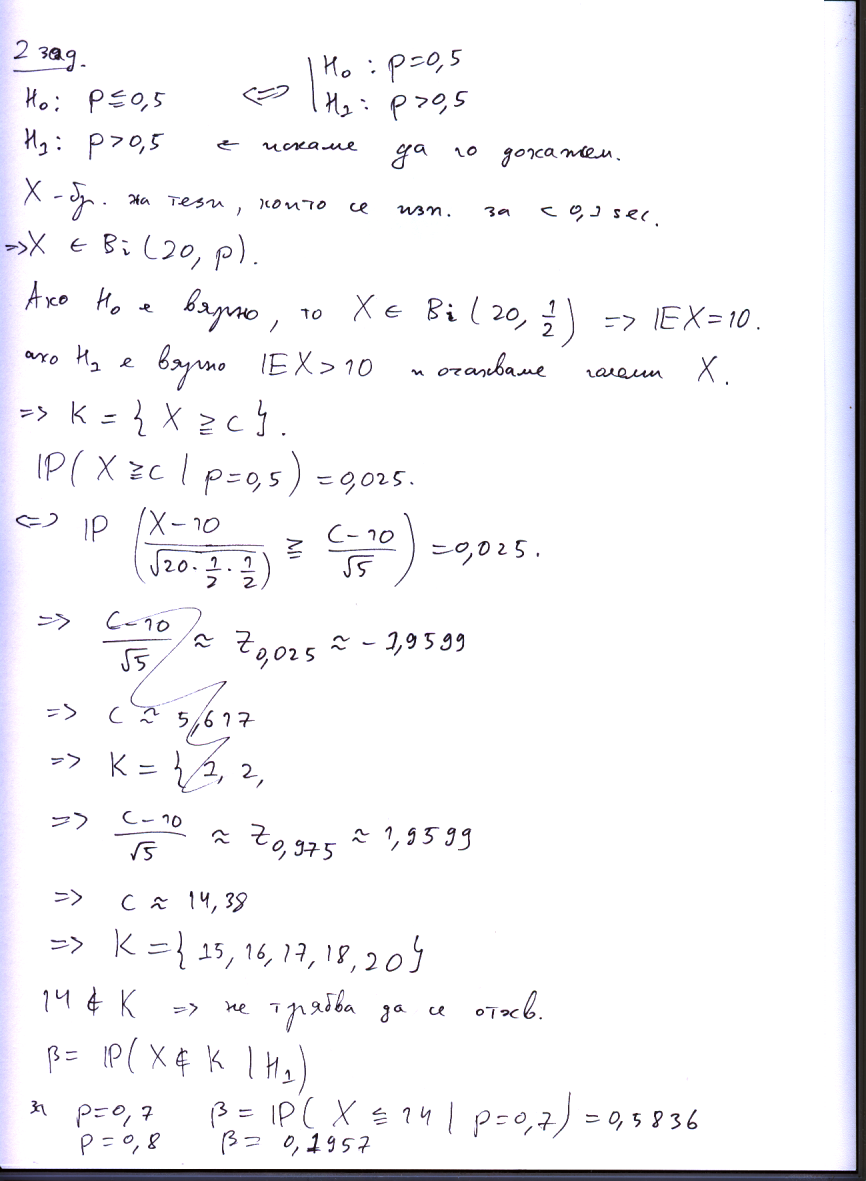 2 зад.
H₀: p ≤ 0,5 <=> | H₀ : p=0,5
H₁: p > 0,5 | H₁ : p > 0,5
← искаме да го докажем.
X - бр. на тези, които се изп. за < 0,1 sec.
=> X ∈ Bi (20, p).
Ако H₀ е вярно, то X ∈ Bi (20, 1/2) => IEX=10.
ако H₁ е вярно IEX > 10 и очакваме големи X.
=> K = { X ≥ c }.
IP( X ≥ c | p=0,5 ) = 0,025.
<=> IP ( (X-10)/√(20·1/2·1/2) ≥ (c-10)/√5 ) = 0,025.
=> (c-10)/√5 ≈ Z₀,₀₂₅ ≈ -1,9599
=> c ≈ 5,617
=> K = { 1, 2,
=> (c-10)/√5 ≈ Z₀,₉₇₅ ≈ 1,9599
=> c ≈ 14,38
=> K = { 15, 16, 17, 18, 20 }
14 ∉ K => не трябва да се отхв.
β = IP( X ∉ K | H₁ )
за p=0,7 β = IP( X ≤ 14 | p=0,7 ) = 0,5836
p=0,8 β = 0,1957